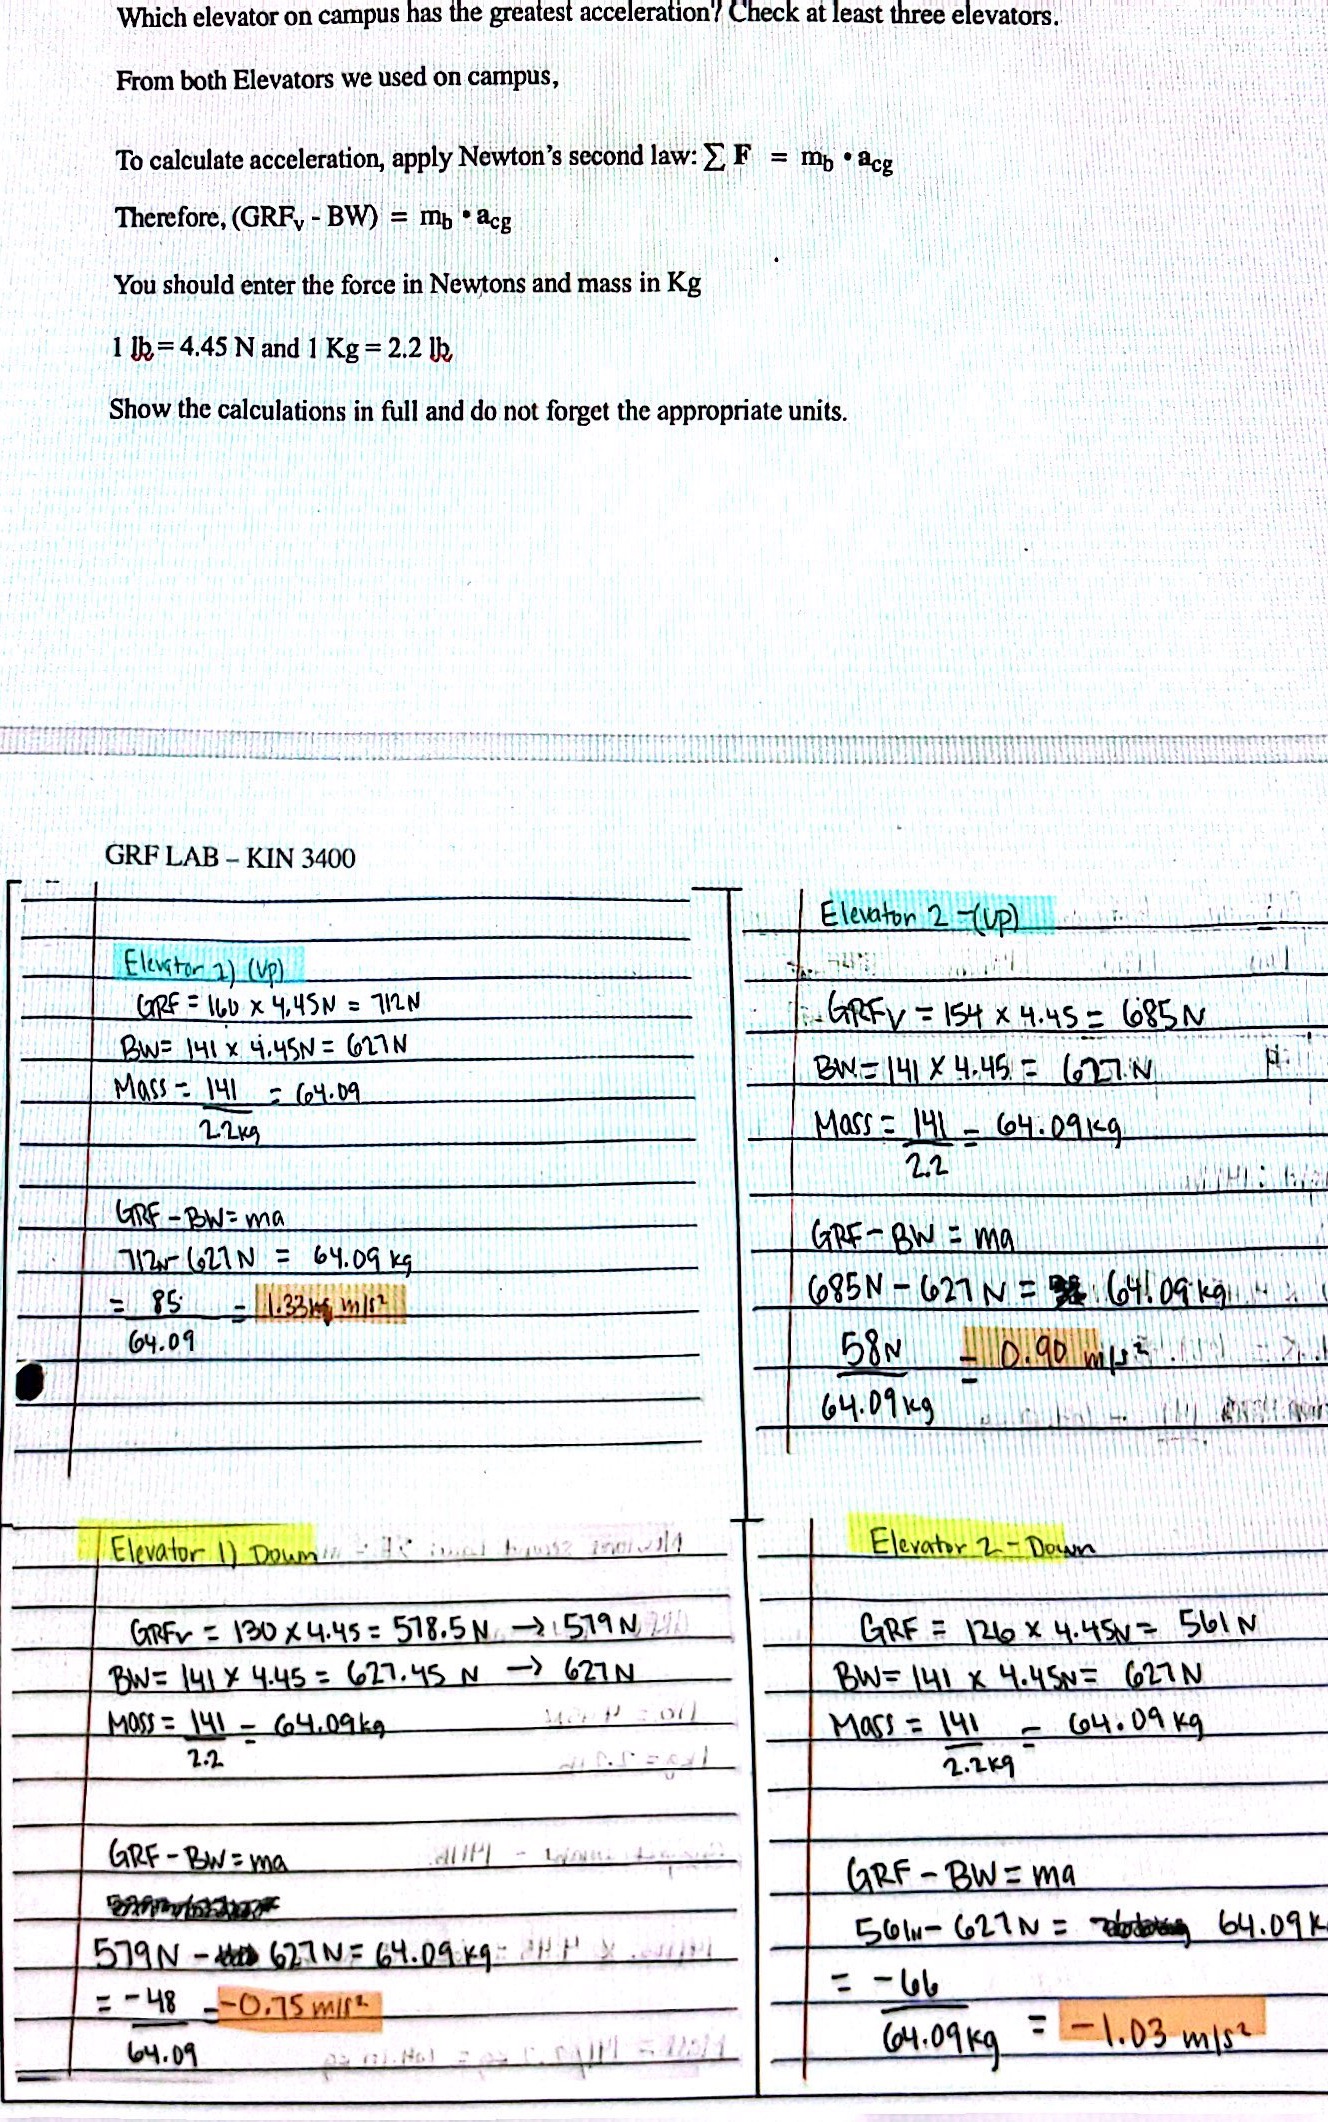 Which elevator on campus has the greatest acceleration? Check at least three elevators.
From both Elevators we used on campus,
To calculate acceleration, apply Newton's second law: ∑ F = mb • acg
Therefore, (GRFv - BW) = mb • acg
You should enter the force in Newtons and mass in Kg
1 lb = 4.45 N and 1 Kg = 2.2 lb
Show the calculations in full and do not forget the appropriate units.
GRF LAB – KIN 3400
Elevator 1) (up)
GRF = 160 x 4.45N = 712N
BW= 141 x 4.45N = 627N
Mass = 141 = 64.09
2.2kg
GRF - BW= ma
712N- 627N = 64.09 kg
= 85 = 1.33 m/s²
64.09
Elevator 2 -(up)
GRFv = 154 x 4.45 = 685N
BW= 141 x 4.45 = 627N
Mass = 141 = 64.09kg
2.2
GRF - BW = ma
685N - 627N = 64.09kg
58N = 0.90 m/s²
64.09kg
Elevator 1) Down
GRFv = 130 x 4.45 = 578.5N → 579N
BW= 141 x 4.45 = 627.45 N → 627N
Mass = 141 = 64.09kg
2.2
GRF - BW = ma
579N - 627N = 64.09kg
= -48 = -0.75 m/s²
64.09
Elevator 2 - Down
GRF = 126 x 4.45N = 561N
BW= 141 x 4.45N= 627N
Mass = 141 = 64.09 kg
2.2kg
GRF - BW = ma
561N- 627N = 64.09k
= -66
64.09kg = -1.03 m/s²